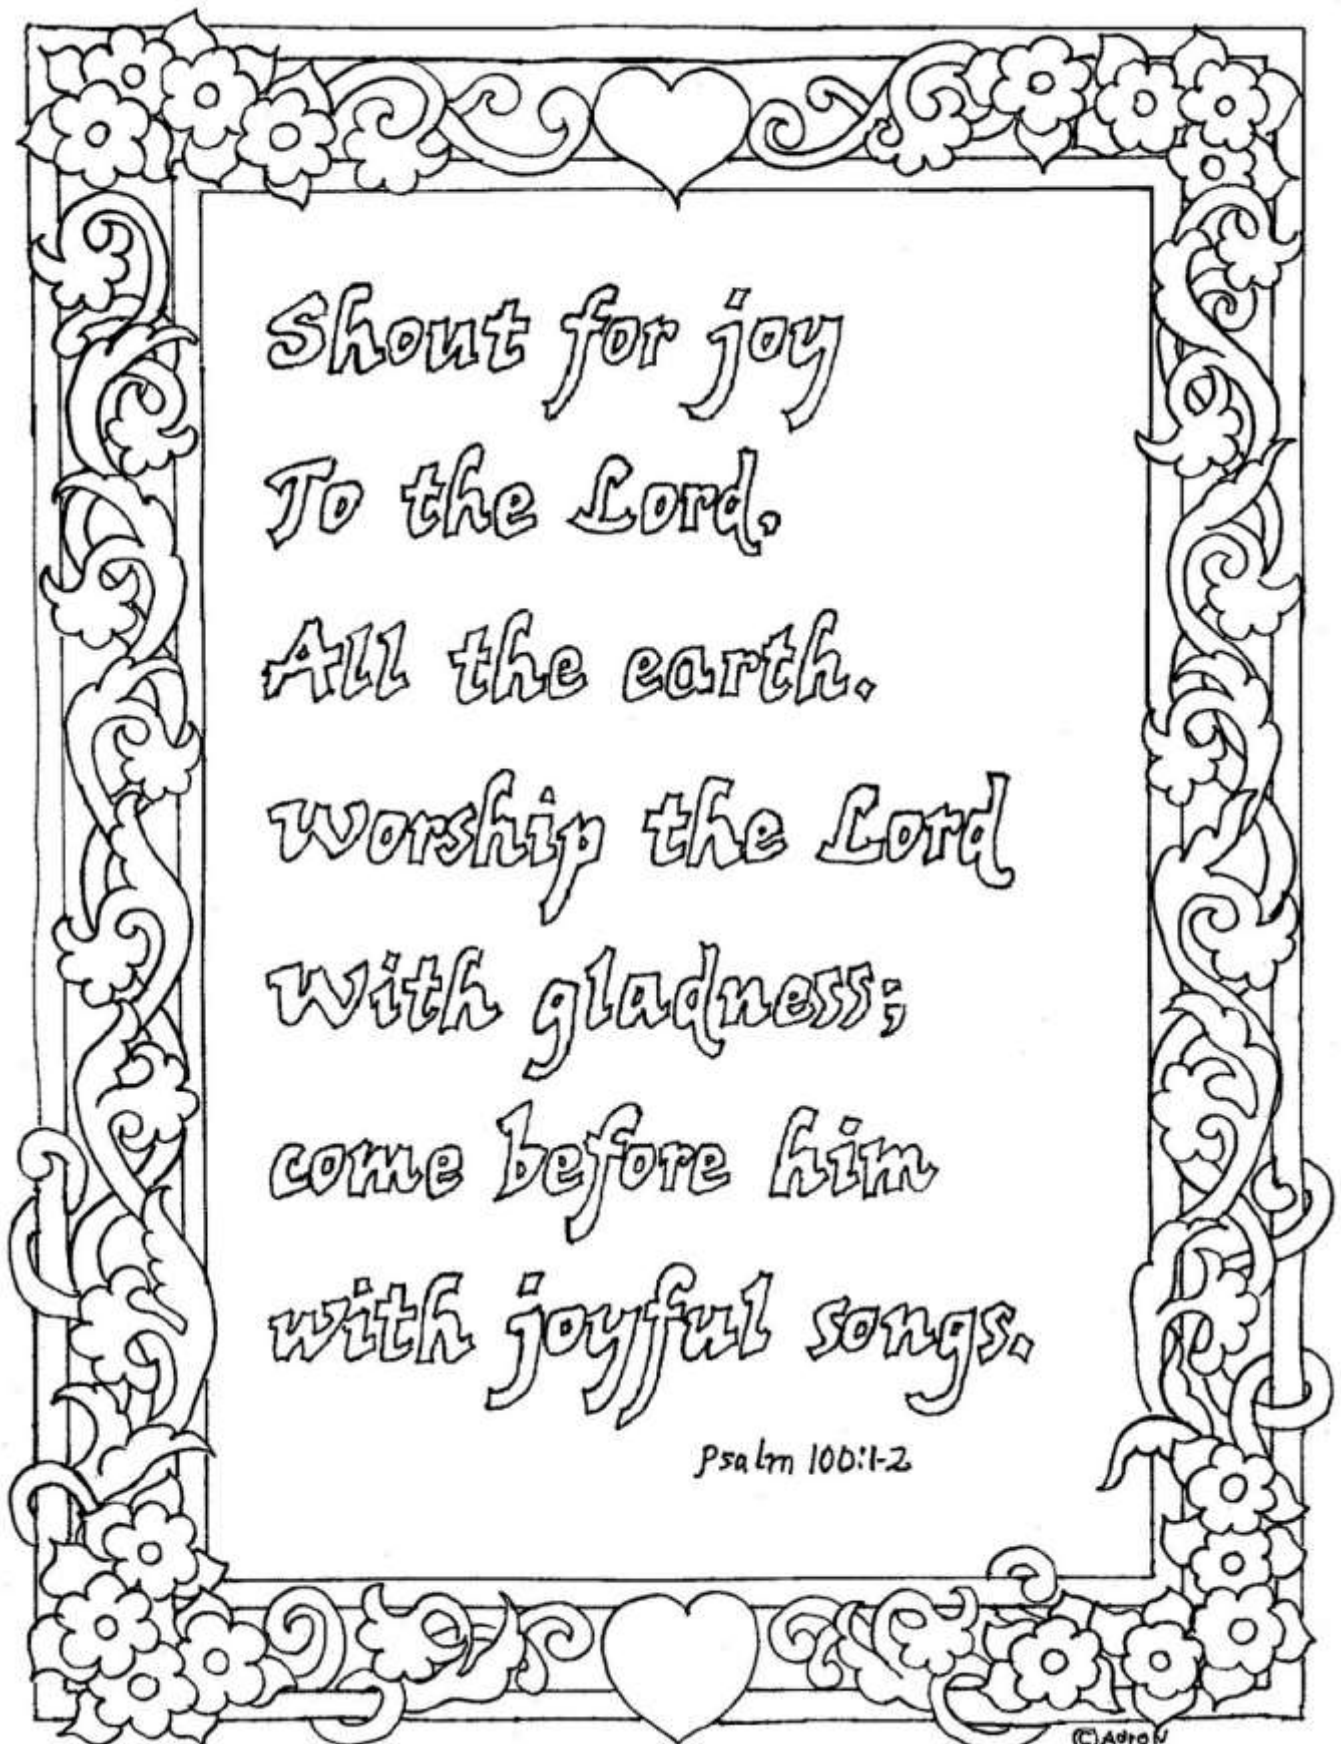 Shout for joy
To the Lord.
All the earth.
Worship the Lord
With gladness;
come before him
with joyful songs.
Psalm 100:1-2